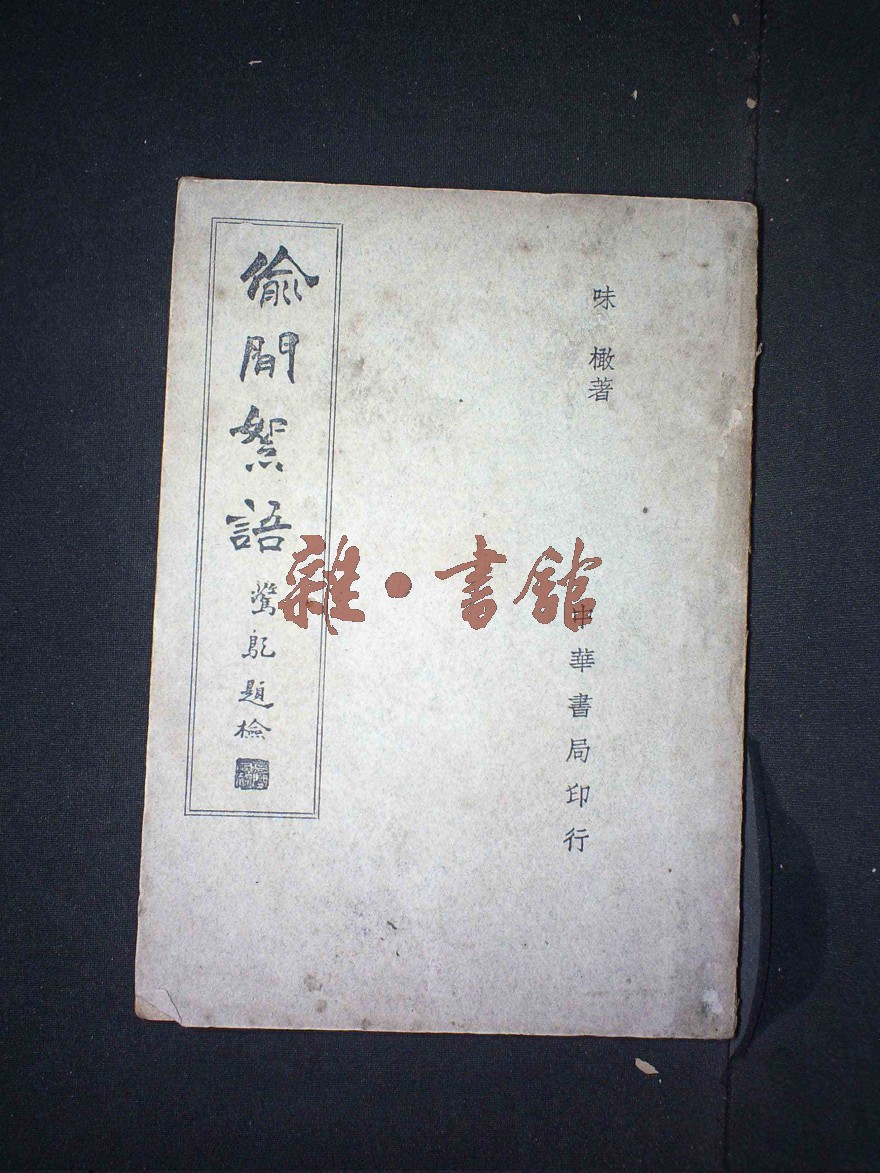 味橄著
中華書局印行
偷閒絮語
題檢
雜·書館